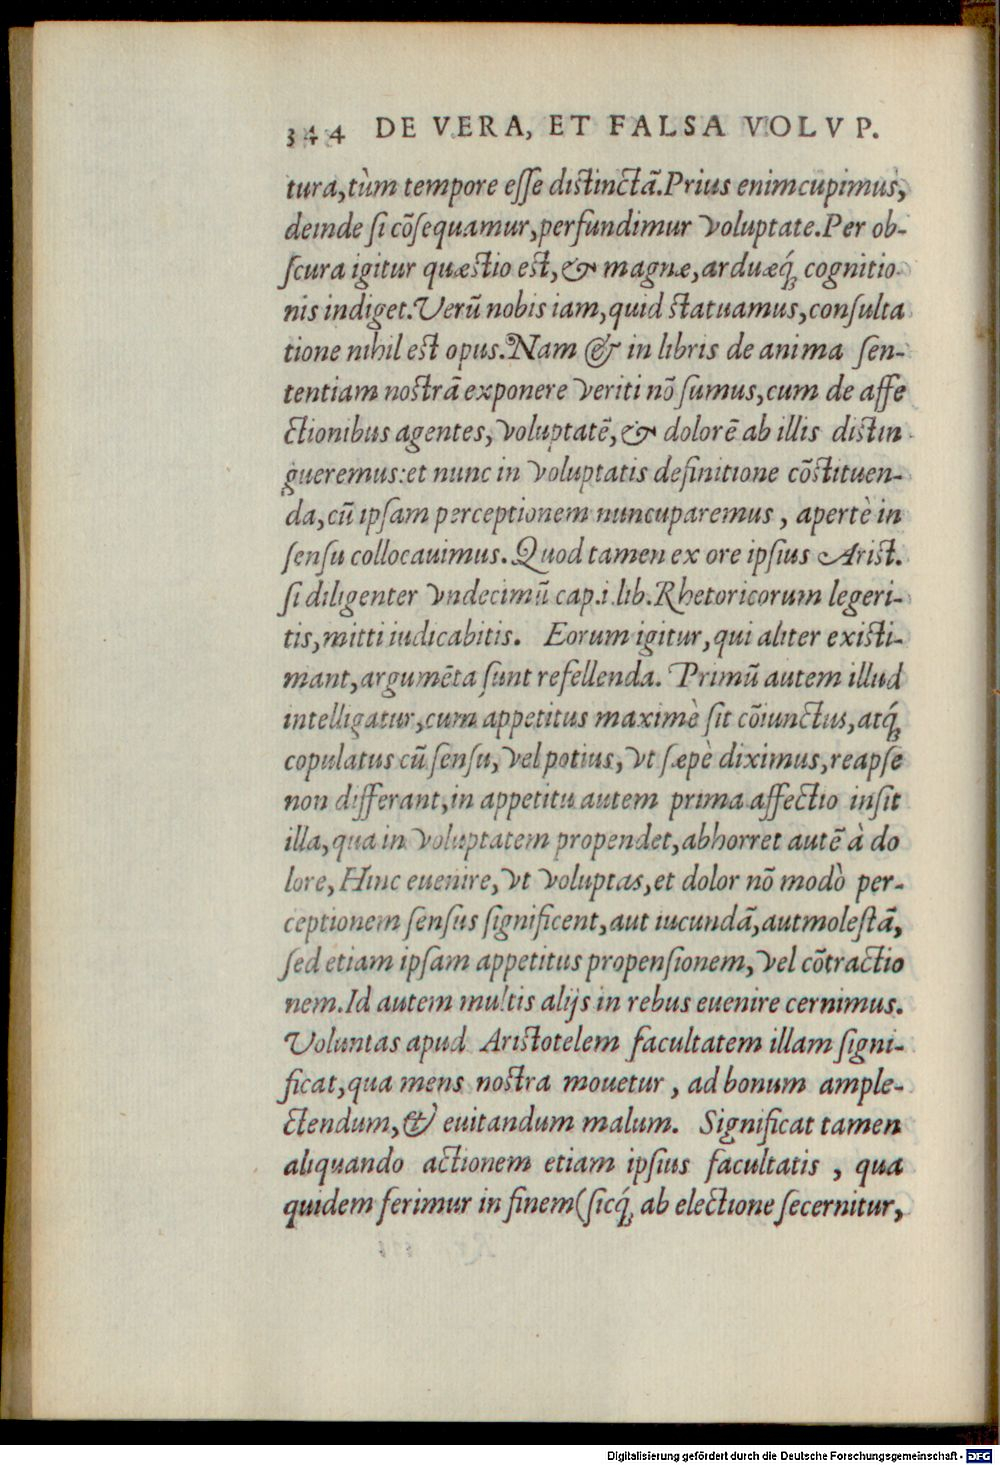 344 DE VERA, ET FALSA VOLVP.
tura, tùm tempore eſſe diſtinctã. Prius enim cupimus,
deinde ſi cõſequamur, perfundimur voluptate. Per ob-
ſcura igitur quæſtio eſt, & magnæ, arduæq́; cognitio
nis indiget. Verũ nobis iam, quid ſtatuamus, conſulta
tione nihil eſt opus. Nam & in libris de anima ſen-
tentiam noſtrã exponere veriti nõ ſumus, cum de affe
ctionibus agentes, voluptatẽ, & dolorẽ ab illis diſtin
gueremus: et nunc in voluptatis definitione cõſtituen-
da, cũ ipſam perceptionem nuncuparemus, apertè in
ſenſu collocauimus. Quod tamen ex ore ipſius Ariſt.
ſi diligenter vndecimũ cap. i. lib. Rhetoricorum legeri-
tis, mitti iudicabitis. Eorum igitur, qui aliter exiſti-
mant, argumẽta ſunt refellenda. Primũ autem illud
intelligatur, cum appetitus maximè ſit cõiunctus, atq́;
copulatus cũ ſenſu, vel potius, vt ſæpè diximus, reapſe
non differant, in appetitu autem prima affectio inſit
illa, qua in voluptatem propendet, abhorret autẽ à do
lore, Hinc euenire, vt voluptas, et dolor nõ modò per-
ceptionem ſenſus ſignificent, aut iucundã, aut moleſtã,
ſed etiam ipſam appetitus propenſionem, vel cõtractio
nem. Id autem multis alijs in rebus euenire cernimus.
Voluntas apud Ariſtotelem facultatem illam ſigni-
ficat, qua mens noſtra mouetur, ad bonum ample-
ctendum, & euitandum malum. Significat tamen
aliquando actionem etiam ipſius facultatis, qua
quidem ferimur in finem (ſicq́; ab electione ſecernitur,
Digitalisierung gefördert durch die Deutsche Forschungsgemeinschaft - DFG